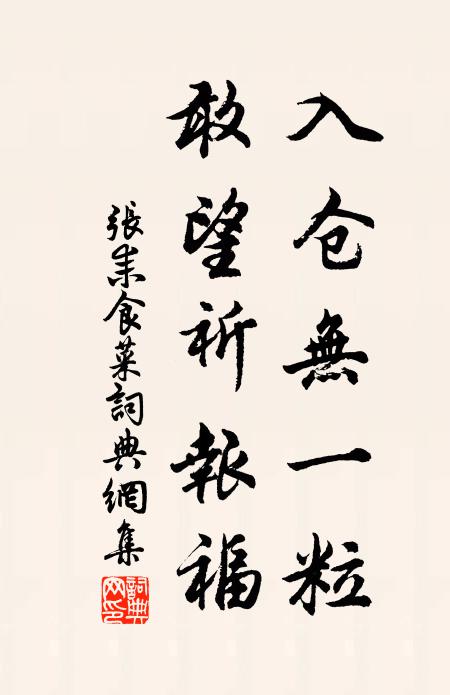 入仓無一粒
敢望祈報福
張耒食菜詞典網集
詞典網印